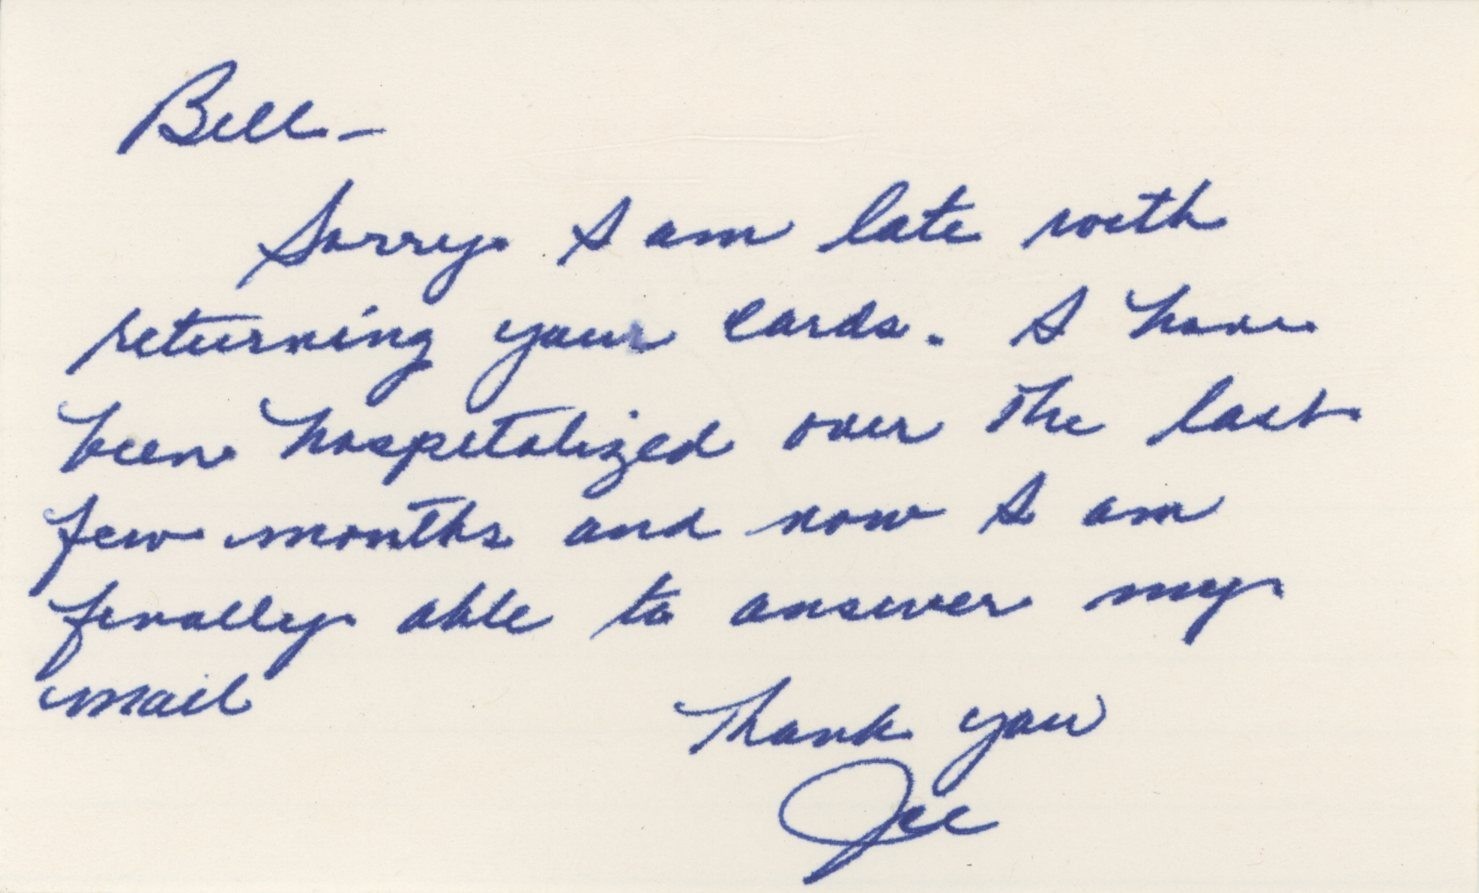 Bill -
Sorry I am late with
returning your cards. I have
been hospitalized over the last
few months and now I am
finally able to answer my
mail
Thank you
Joe